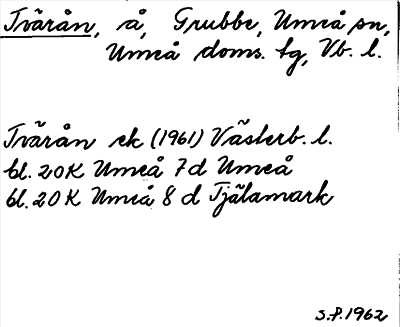 Tvärån, å, Grubbe, Umeå sn,
Umeå doms. tg, Vb. l.
Tvärån ek (1961) Västerb. l.
bl. 20K Umeå 7d Umeå
bl. 20K Umeå 8 d Tjälamark
S.P. 1962